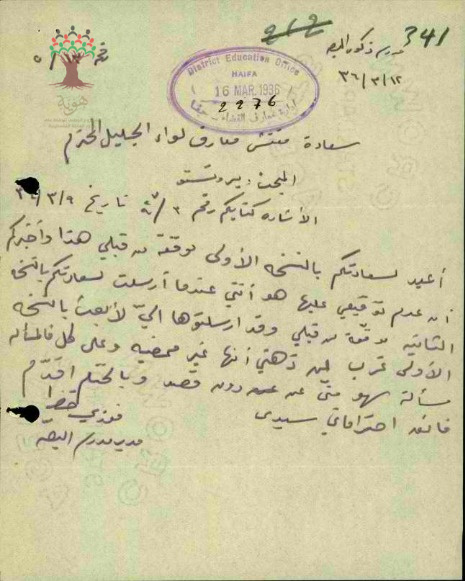 341
مدرسة ذكور البصة
٣٦/٣/١٢
نمرة ٥/١٣
هوية
District Education Office
HAIFA
16 MAR 1936
2276
سعادة مفتش معارف لواء الجليل المحترم
المبحث :
الاشارة كتابكم رقم تاريخ ٣٦/٣/٩
أعيد لسعادتكم بالنسخة الأولى موقعة من قبلي هذا وأخبركم
أن عدم توقيعي عليها هو أنني عندما أرسلت لسعادتكم بالنسخة
الثانية موقعة من قبلي وقد ارسلتوها اليّ لأبعث بالنسخة
الأولى غرب عن ذهني أنها غير ممضية وعلى كل فالمسألة
مسألة سهو مني عن غير دون قصد وبالختام اقدّم
فائق احتراماتي سيدي
مدير مدرسة البصة